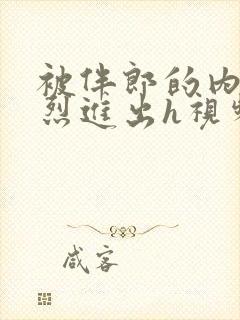 被伴郎的内
烈进出h视频
咸客